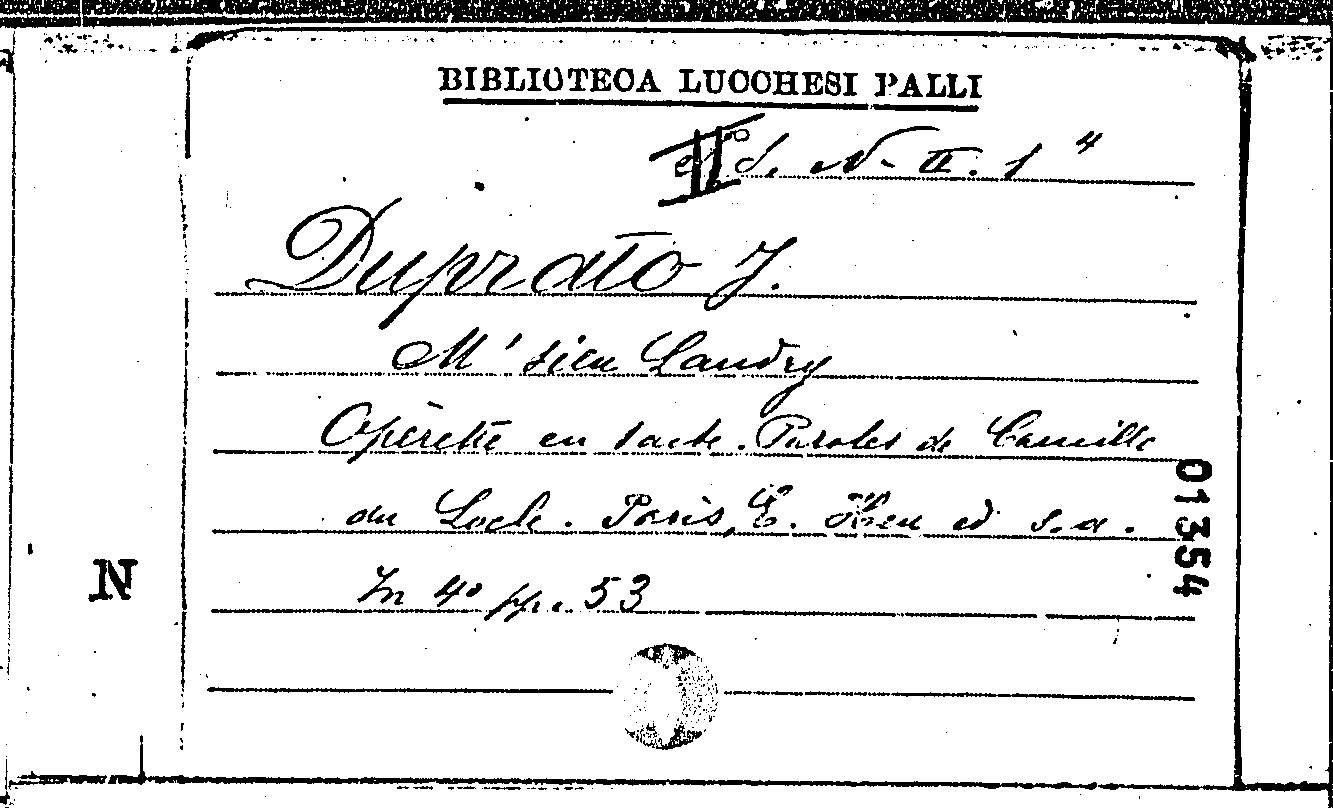 BIBLIOTECA LUCCHESI PALLI
II S. N- II. 1 4
Duprato J.
M'sieu Landry
Opèrette en 1 acte. Paroles de Camille
du Locle. Paris, E. Heu ed s.a.
In 4° pp. 53
N
01354